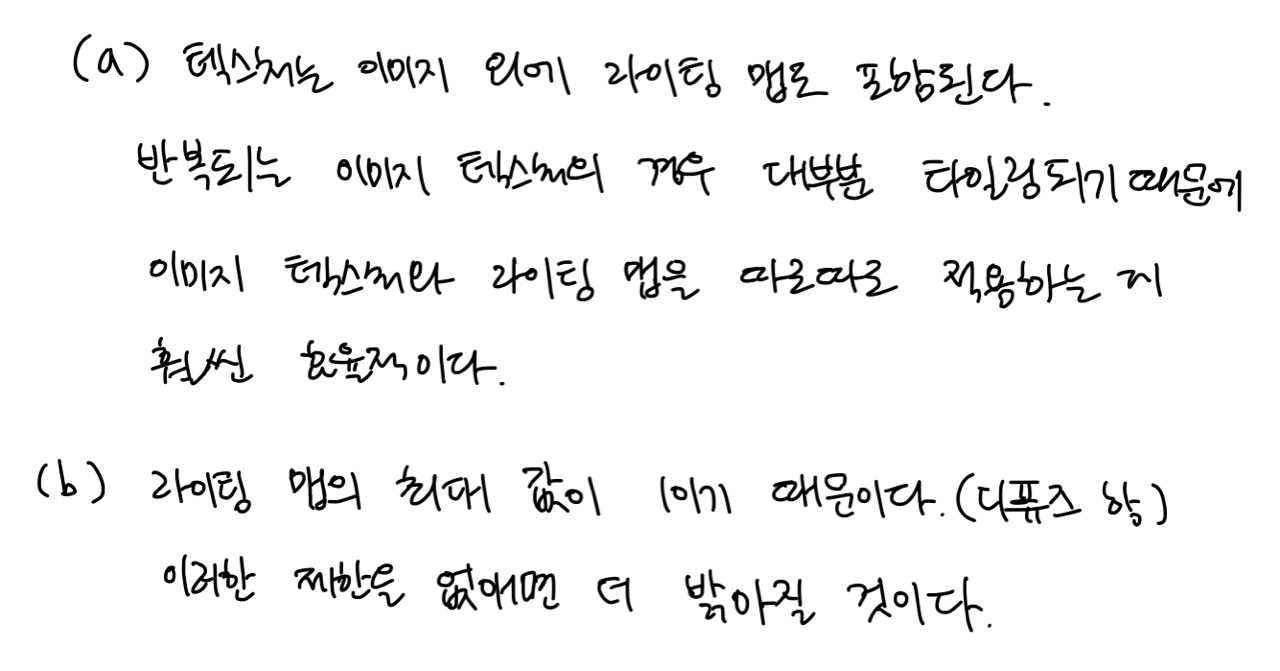 (a) 텍스처는 이미지 외에 라이팅 맵도 포함된다.
반복되는 이미지 텍스처의 경우 대부분 타일링되기 때문에
이미지 텍스처와 라이팅 맵을 따로따로 적용하는 게
훨씬 효율적이다.
(b) 라이팅 맵의 최대 값이 1이기 때문이다. (디퓨즈 항)
이러한 제한을 없애면 더 밝아질 것이다.